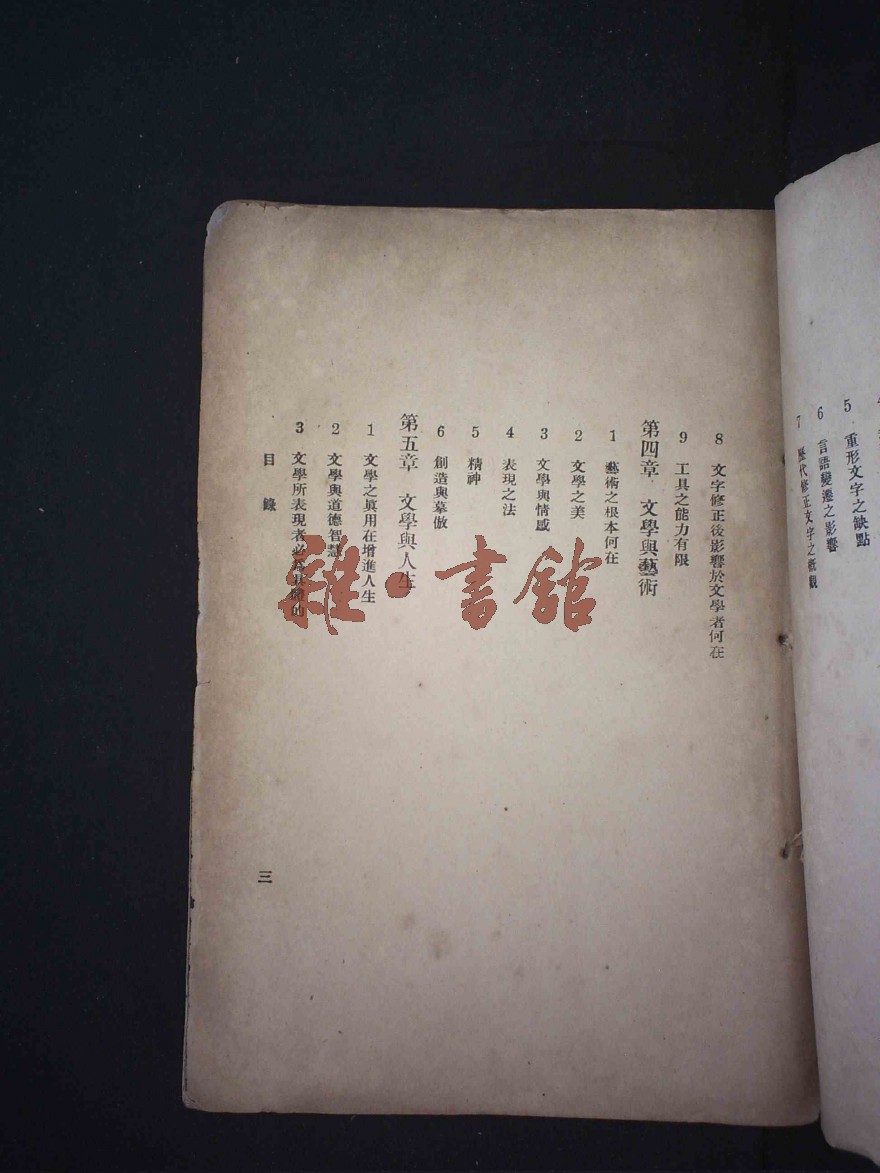 5 重形文字之缺點
6 言語變遷之影響
7 歷代修正文字之概觀
8 文字修正後影響於文學者何在
9 工具之能力有限
第四章 文學與藝術
1 藝術之根本何在
2 文學之美
3 文學與情感
4 表現之法
5 精神
6 創造與摹倣
第五章 文學與人生
1 文學之眞用在增進人生
2 文學與道德智慧
3 文學所表現者必為具體的
目錄
三
雜·書館